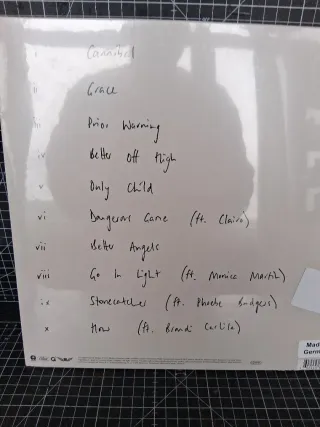 i Cannibal
ii Grace
iii Prior Warning
iv Better Off High
v Only Child
vi Dangerous Game (ft. Clairo)
vii Better Angels
viii Go In Light (ft. Monica Martin)
ix Stonecatcher (ft. Phoebe Bridgers)
x How (ft. Brandi Carlile)
Mad
Germ